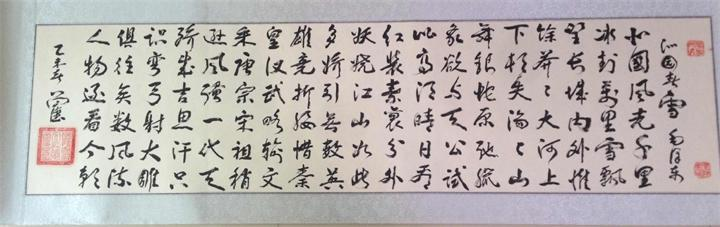 沁园春雪 毛泽东
北國風光千里
冰封萬里雪飄
望長城内外惟
馀莽々大河上
下顿失滔々山
舞银蛇原驰蜡
象欲与天公试
比高须晴日看
红装素裹分外
妖娆江山如此
多娇引無数英
雄竞折腰惜秦
皇汉武略输文
采唐宗宋祖稍
逊风骚一代天
骄成吉思汗只
识弯弓射大雕
俱往矣数风流
人物还看今朝
乙未年